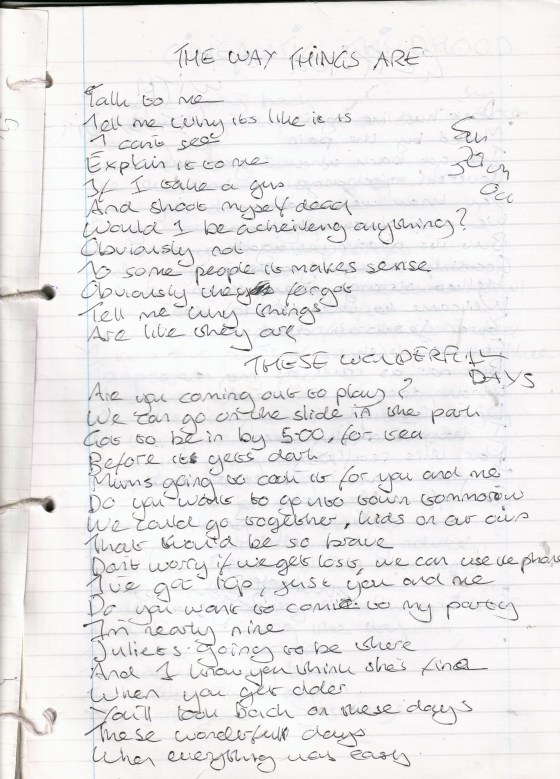 THE WAY THINGS ARE
Talk to me
Tell me why its like it is
I cant see
Explain it to me
If I take a gun
And shoot myself dead
Would I be acheiveng anything?
Obviously not
To some people it makes sense
Obviously they forgot
Tell me why things
Are like they are
Sun
30th
Oct
THESE WONDERFULL
DAYS
Are you coming out to play?
We can go on the slide in the park
Got to be in by 5:00, for tea
Before its gets dark
Mums going to cook it for you and me
Do you want to go into town tommorow
We could go together, kids on our own
That would be so brave
Dont worry if we get lost, we can use the phone
I've got 10p, just you and me
Do you want to come to my party
I'm nearly nine
Juliets going to be there
And I know you think she's fine
When you get older
You'll look back on these days
These wonderfull days
When everything was easy.